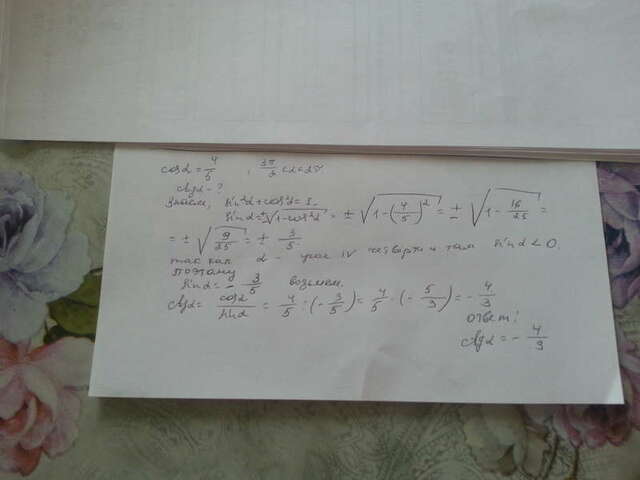 cos α = 4/5 ; 3π/2 < α < 2π
ctg α - ?
sin²α + cos²α = 1.
sin α = ±√1-cos²α = ±√1-(4/5)² = ±√1-16/25 =
= ±√9/25 = ± 3/5
так как α - угол IV четверти и там sin α < 0.
поэтому
sin α = - 3/5
ctg α = cos α/sin α = 4/5 : (- 3/5) = 4/5 · (- 5/3) = - 4/3
Ответ:
ctg α = - 4/3